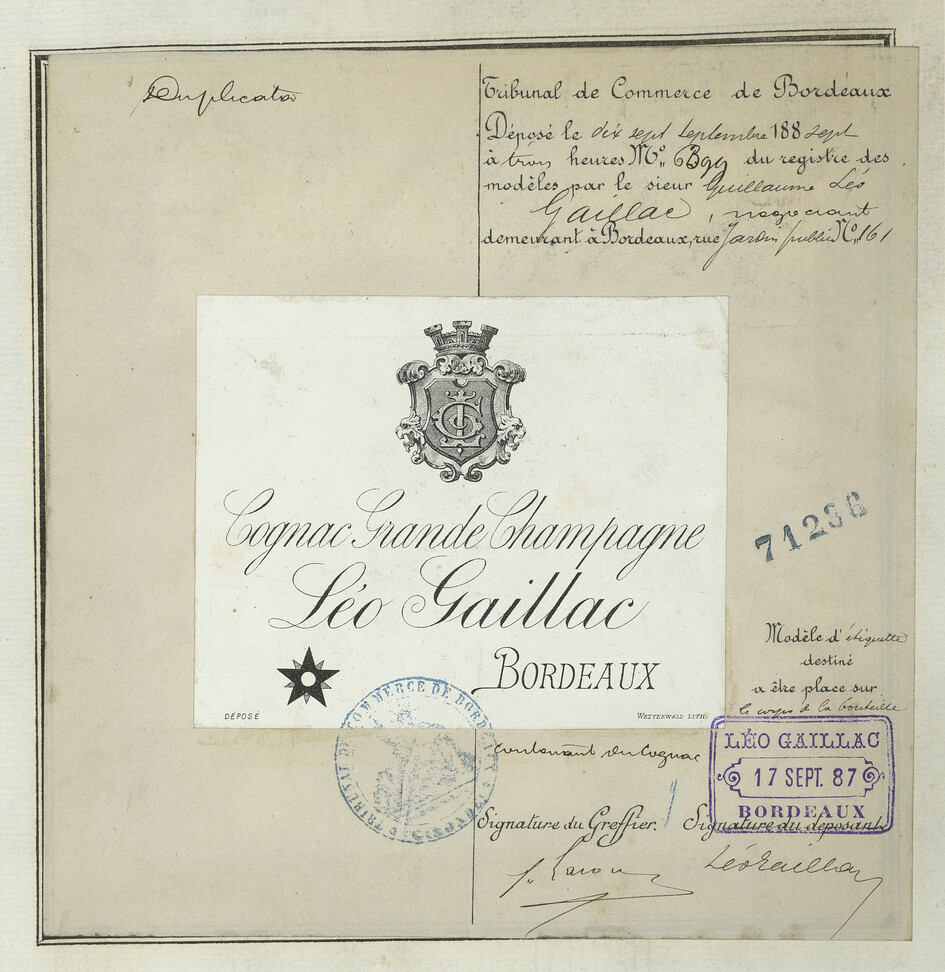 Duplicata
Tribunal de Commerce de Bordeaux
Déposé le dix sept Septembre 188 sept
à trois heures No. du registre des
modèles par le sieur Guillaume Léo
Gaillac, négociant
demeurant à Bordeaux, rue Jardin public No. 161
Cognac Grande Champagne
Léo Gaillac
BORDEAUX
DÉPOSÉ
WETTERWALD LITH.
71236
Modèle d'étiquette
destiné
a être place sur
le corps de la bouteille
contenant du Cognac
TRIBUNAL DE COMMERCE DE BORDEAUX
LÉO GAILLAC
17 SEPT. 87
BORDEAUX
Signature du Greffier. Signature du déposant.
Léo Gaillac